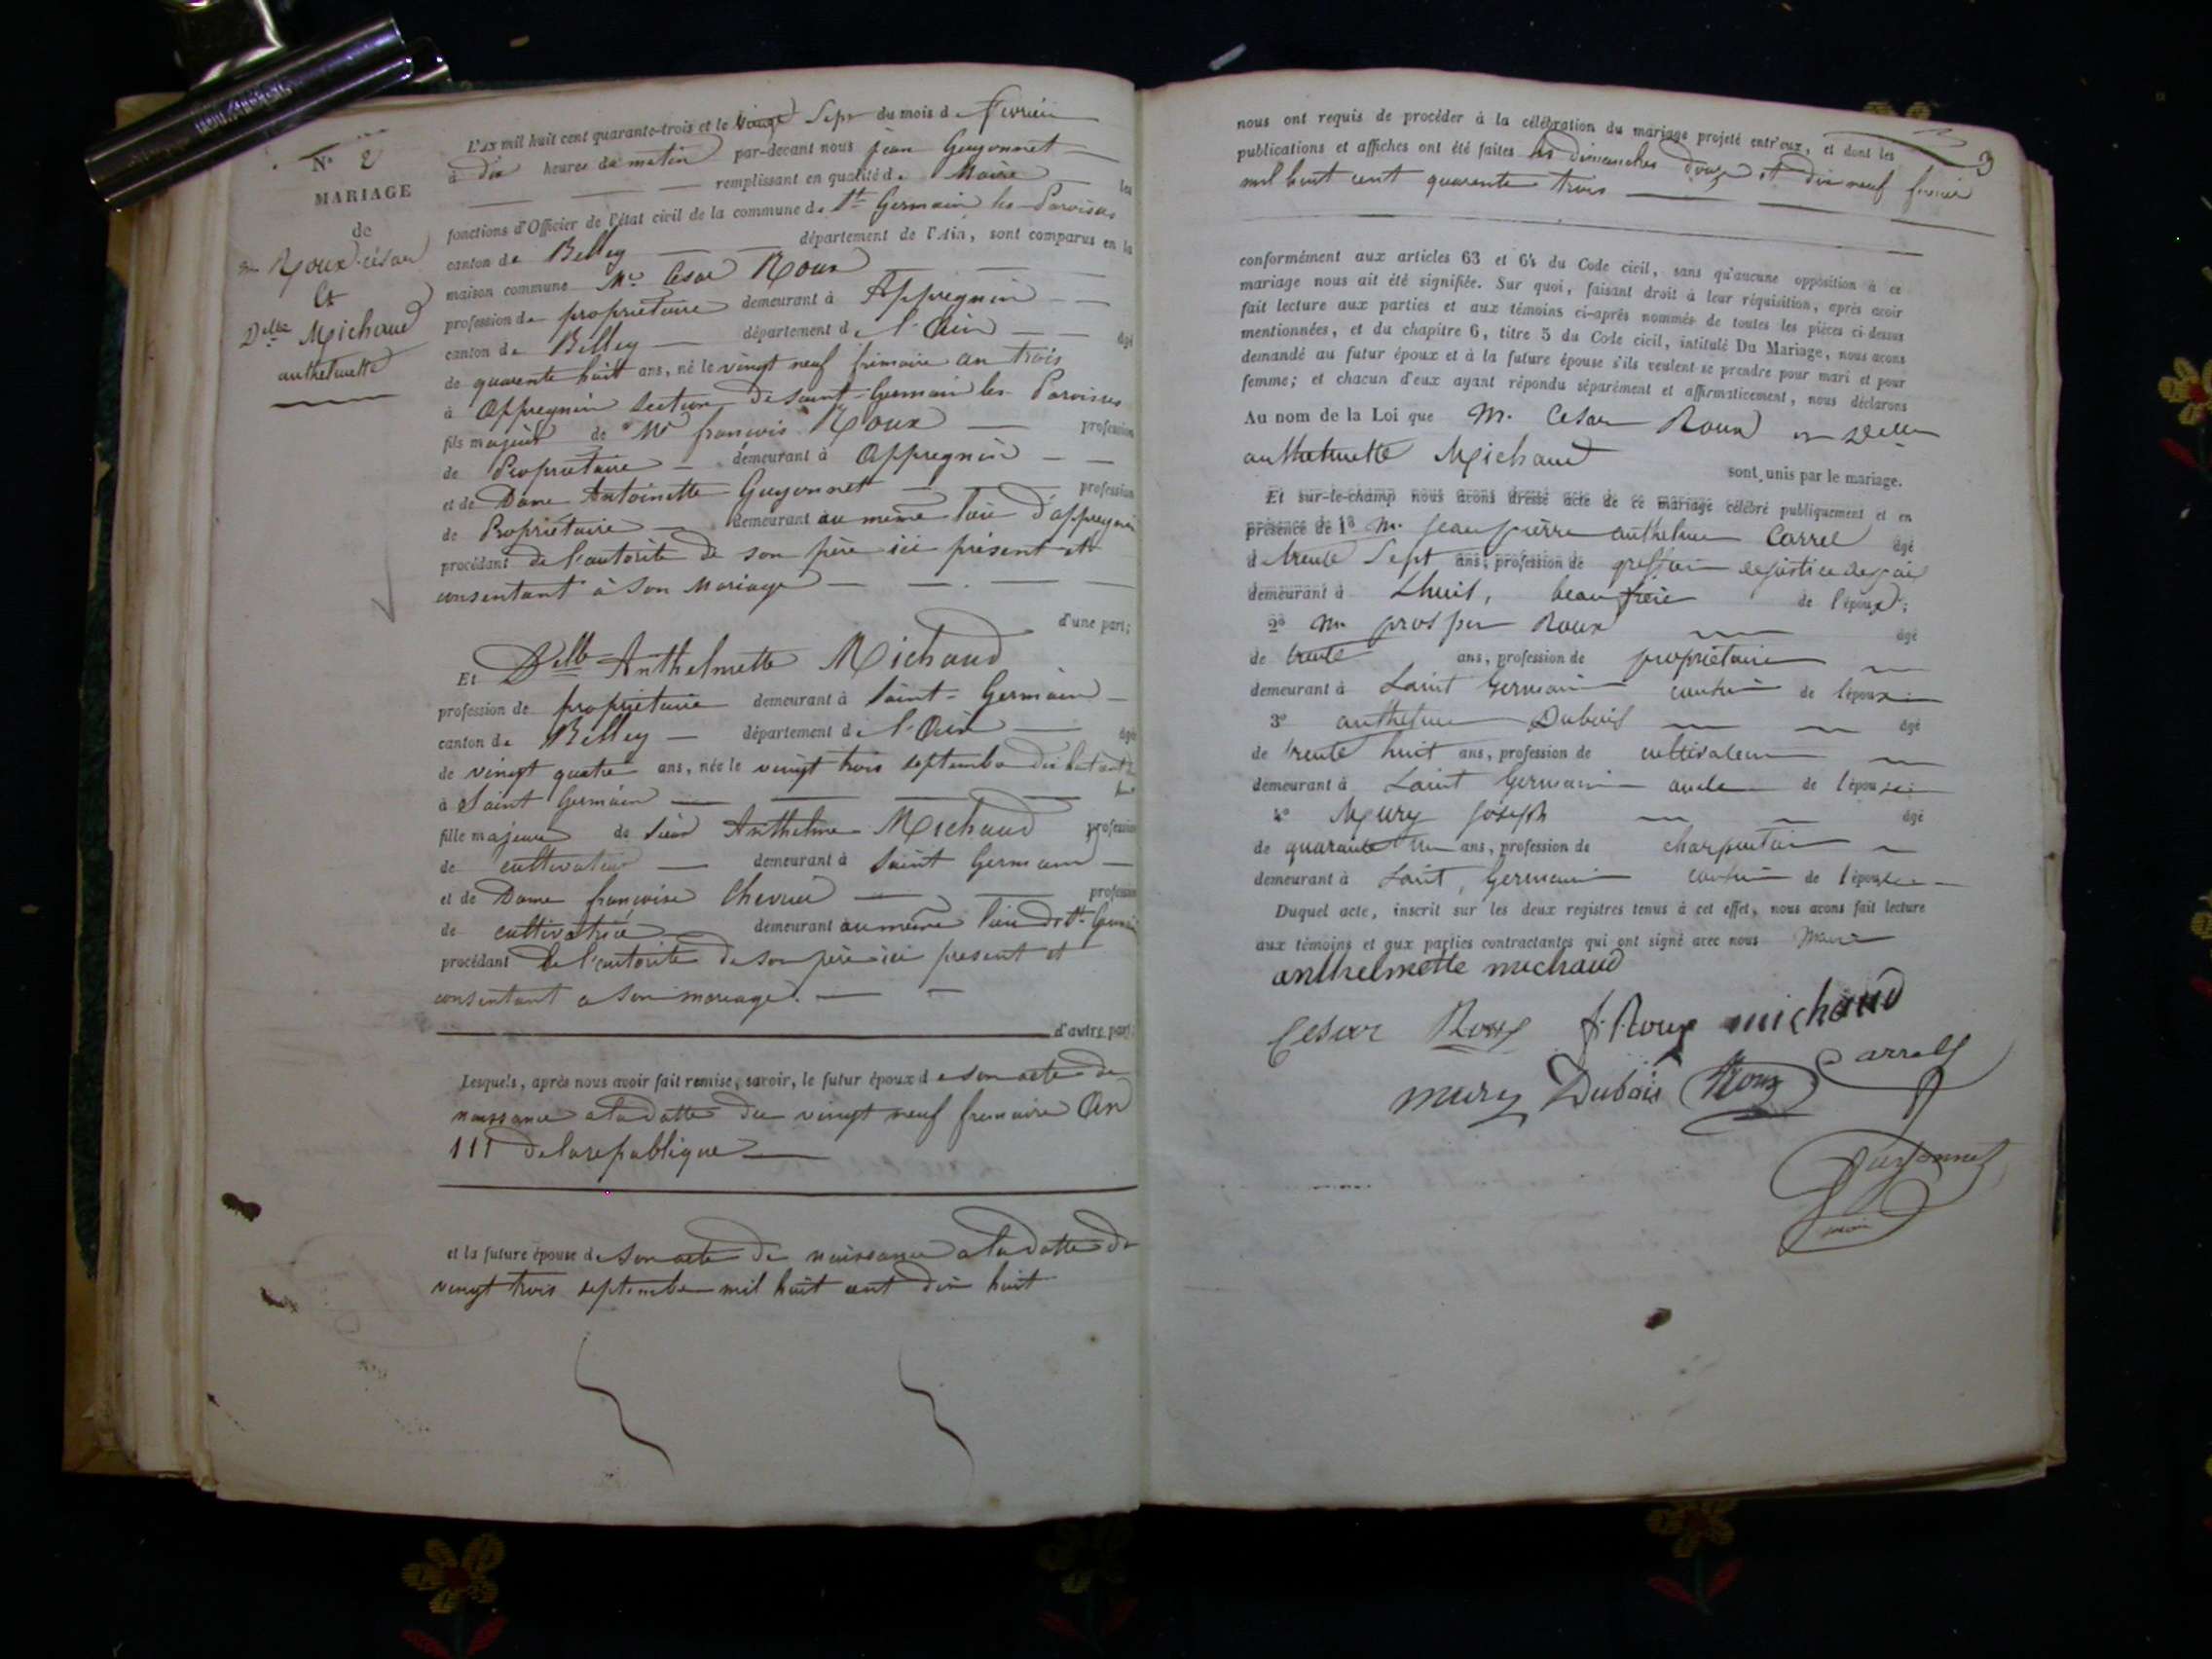 N° 2
MARIAGE
de
mr Roux César
Et
Delle Michaud
anthelmette
L'an mil huit cent quarante-trois et le vingt Sept du mois de fevrier
à dix heures du matin par-devant nous jean Guyonnet
remplissant en qualité de Maire les
fonctions d'Officier de l'état civil de la commune de St Germain les Paroisses
canton de Belley département de l'Ain, sont comparus en la
maison commune Mr Cesar Roux
profession de propriétaire demeurant à Appregnin
canton de Belley département de l'Ain âgé
de quarente huit ans, né le vingt neuf frimaire an trois
à Appregnin section de Saint-Germain les Paroisses
fils majeur de Mr françois Roux profession
de Propriétaire demeurant à Appregnin
et de Dame Antoinette Guyonnet profession
de Propriétaire demeurant au même lieu d'appregnin
procédant de l'autorité de son père ici présent et
consentant à son Mariage
d'une part;
Et Delle Anthelmette Michaud
profession de propriétaire demeurant à Saint-Germain
canton de Belley département de l'Ain âgée
de vingt quatre ans, née le vingt trois septembre dix huit cent dix huit
à Saint Germain
fille majeure de Sieur Anthelme Michaud profession
de cultivateur demeurant à Saint Germain
et de Dame françoise Chevrier profession
de cultivatrice demeurant au même lieu de St Germain
procédant de l'autorité de son père ici présent et
consentant a son mariage.
d'autre part;
Lesquels, après nous avoir fait remise, savoir, le futur époux de son acte de
naissance a la datte du vingt neuf frimaire an
III de la republique
et la future épouse de son acte de naissance a la datte du
vingt trois septembre mil huit cent dix huit
3
nous ont requis de procéder à la célébration du mariage projeté entr'eux, et dont les
publications et affiches ont été faites les dimanches douze et dix neuf fevrier
mil huit cent quarente trois
conformément aux articles 63 et 64 du Code civil, sans qu'aucune opposition à ce
mariage nous ait été signifiée. Sur quoi, faisant droit à leur réquisition, après avoir
fait lecture aux parties et aux témoins ci-après nommés de toutes les pièces ci-dessus
mentionnées, et du chapitre 6, titre 5 du Code civil, intitulé Du Mariage, nous avons
demandé au futur époux et à la future épouse s'ils veulent se prendre pour mari et pour
femme; et chacun d'eux ayant répondu séparément et affirmativement, nous déclarons
Au nom de la Loi que M. Cesar Roux et Delle
anthelmette Michaud
sont unis par le mariage.
Et sur-le-champ nous avons dressé acte de ce mariage célébré publiquement et en
présence de 1° M. Jean pierre anthelme Carrel âgé
de trente Sept ans, profession de greffier de justice de paix
demeurant à Lhuis, beau frère de l'époux;
2° mr prosper Roux âgé
de trente ans, profession de propriétaire
demeurant à Saint Germain cousin de l'époux
3° anthelme Dubois âgé
de trente huit ans, profession de cultivateur
demeurant à Saint Germain oncle de l'épouse
4° Mury joseph âgé
de quarante un ans, profession de charpentier
demeurant à Saint Germain cousin de l'épouse
Duquel acte, inscrit sur les deux registres tenus à cet effet, nous avons fait lecture
aux témoins et aux parties contractantes qui ont signé avec nous Maire
anthelmette michaud
Cesar Roux f. Roux michaud
mury Dubois Roux Carrel
Guyonnet
maire